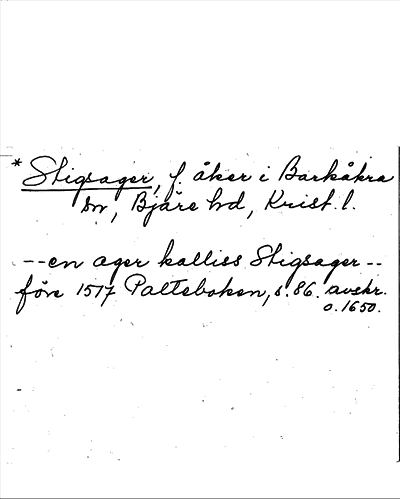 * Stigsager, f. åker i Barkåkra
sn, Bjäre hd, Krist. l.
--en ager kalliss Stigsager--
före 1517 Palteboken, s. 86. avskr.
o. 1650.